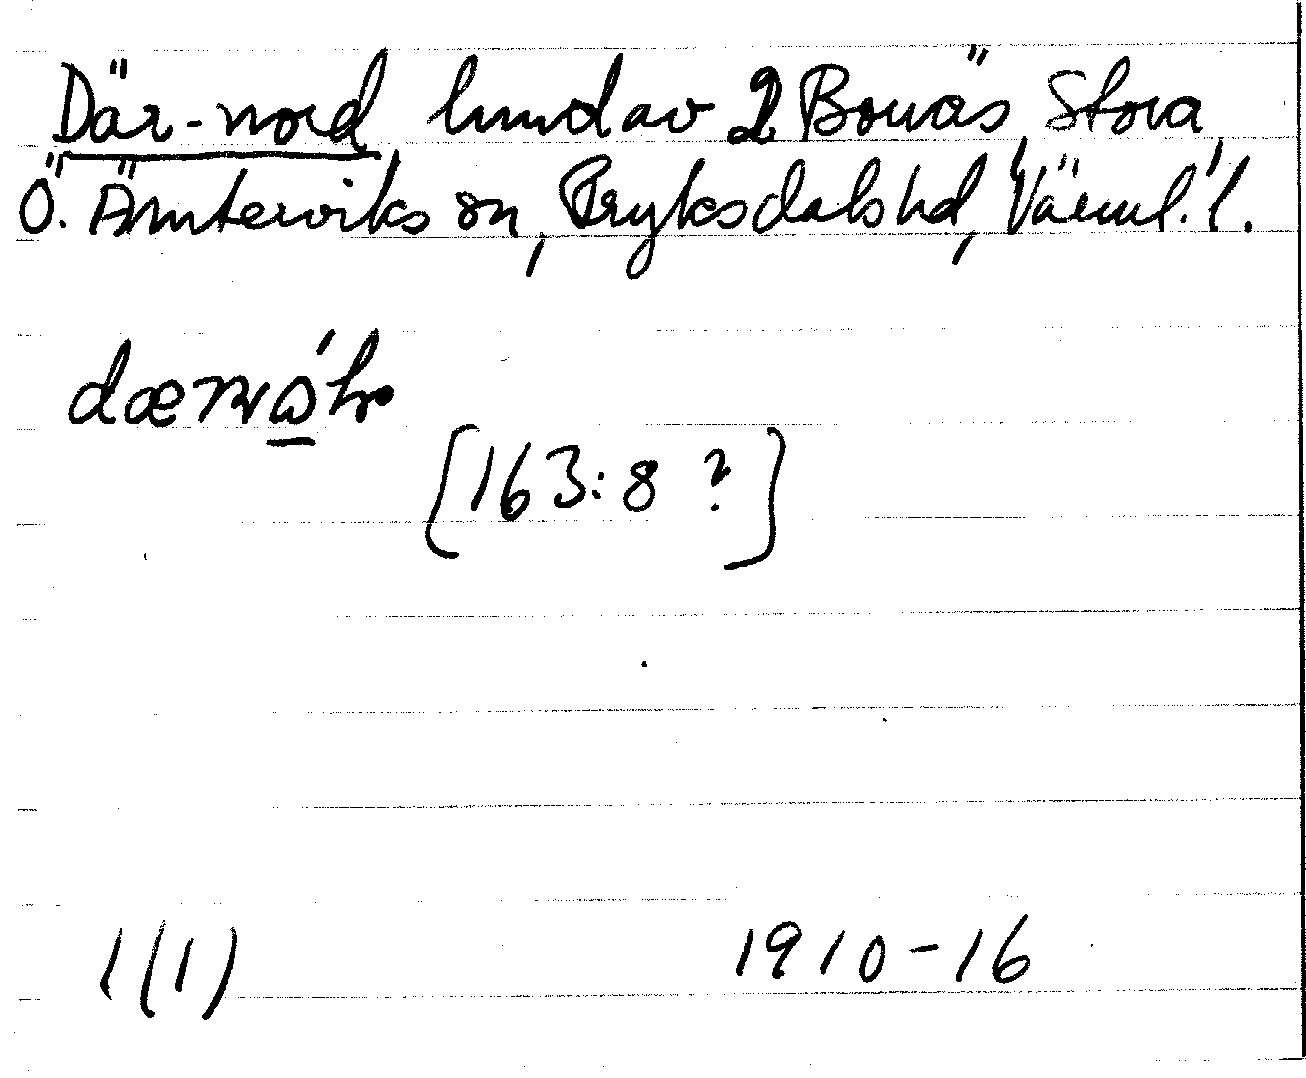 Där-nord, hmd av 2 Bonäs, Stora,
Ö. Ämterviks sn, Fryksdals hd, Värml. l.
[163:8 ?]
1(1) 1910-16